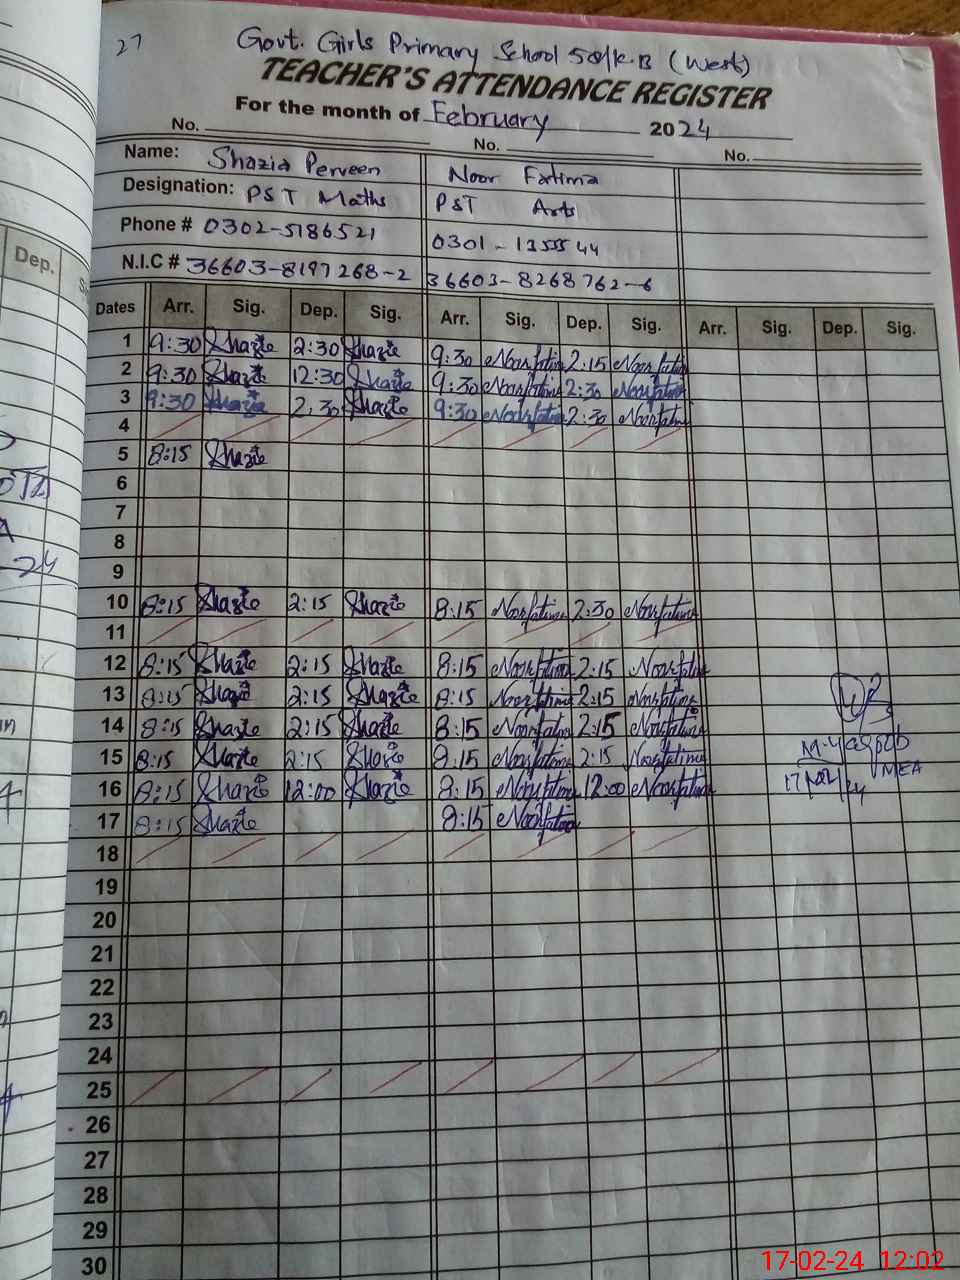 27
Govt. Girls Primary School 508/K.B (West)
TEACHER'S ATTENDANCE REGISTER
For the month of February 2024
No. No. No.
Name: Shazia Perveen Noor Fatima
Designation: PST Maths PST Arts
Phone # 0302-5186521 0301-1355544
N.I.C # 36603-8197268-2 36603-8268762-6
Dep.
Dates Arr. Sig. Dep. Sig. Arr. Sig. Dep. Sig. Arr. Sig. Dep. Sig.
1 9:30 Shazie 2:30 Shazie 9:30 Noorfatima 2:15 Noorfatima
2 9:30 Shazie 12:30 Shazie 9:30 Noorfatima 2:30 Noorfatima
3 9:30 Shazie 2:30 Shazie 9:30 Noorfatima 2:30 Noorfatima
4
5 8:15 Shazie
6
7
8
9
10 8:15 Shazie 2:15 Shazie 8:15 Noorfatima 2:30 Noorfatima
11
12 8:15 Shazie 2:15 Shazie 8:15 Noorfatima 2:15 Noorfatima
13 8:15 Shazie 2:15 Shazie 8:15 Noorfatima 2:15 Noorfatima
14 8:15 Shazie 2:15 Shazie 8:15 Noorfatima 2:15 Noorfatima
15 8:15 Shazie 2:15 Shazie 8:15 Noorfatima 2:15 Noorfatima
16 8:15 Shazie 12:00 Shazie 8:15 Noorfatima 12:00 Noorfatima
MEA
17 8:15 Shazie 8:15 Noorfatima
18
19
20
21
22
23
24
25
26
27
28
29
30
17-02-24 12:02